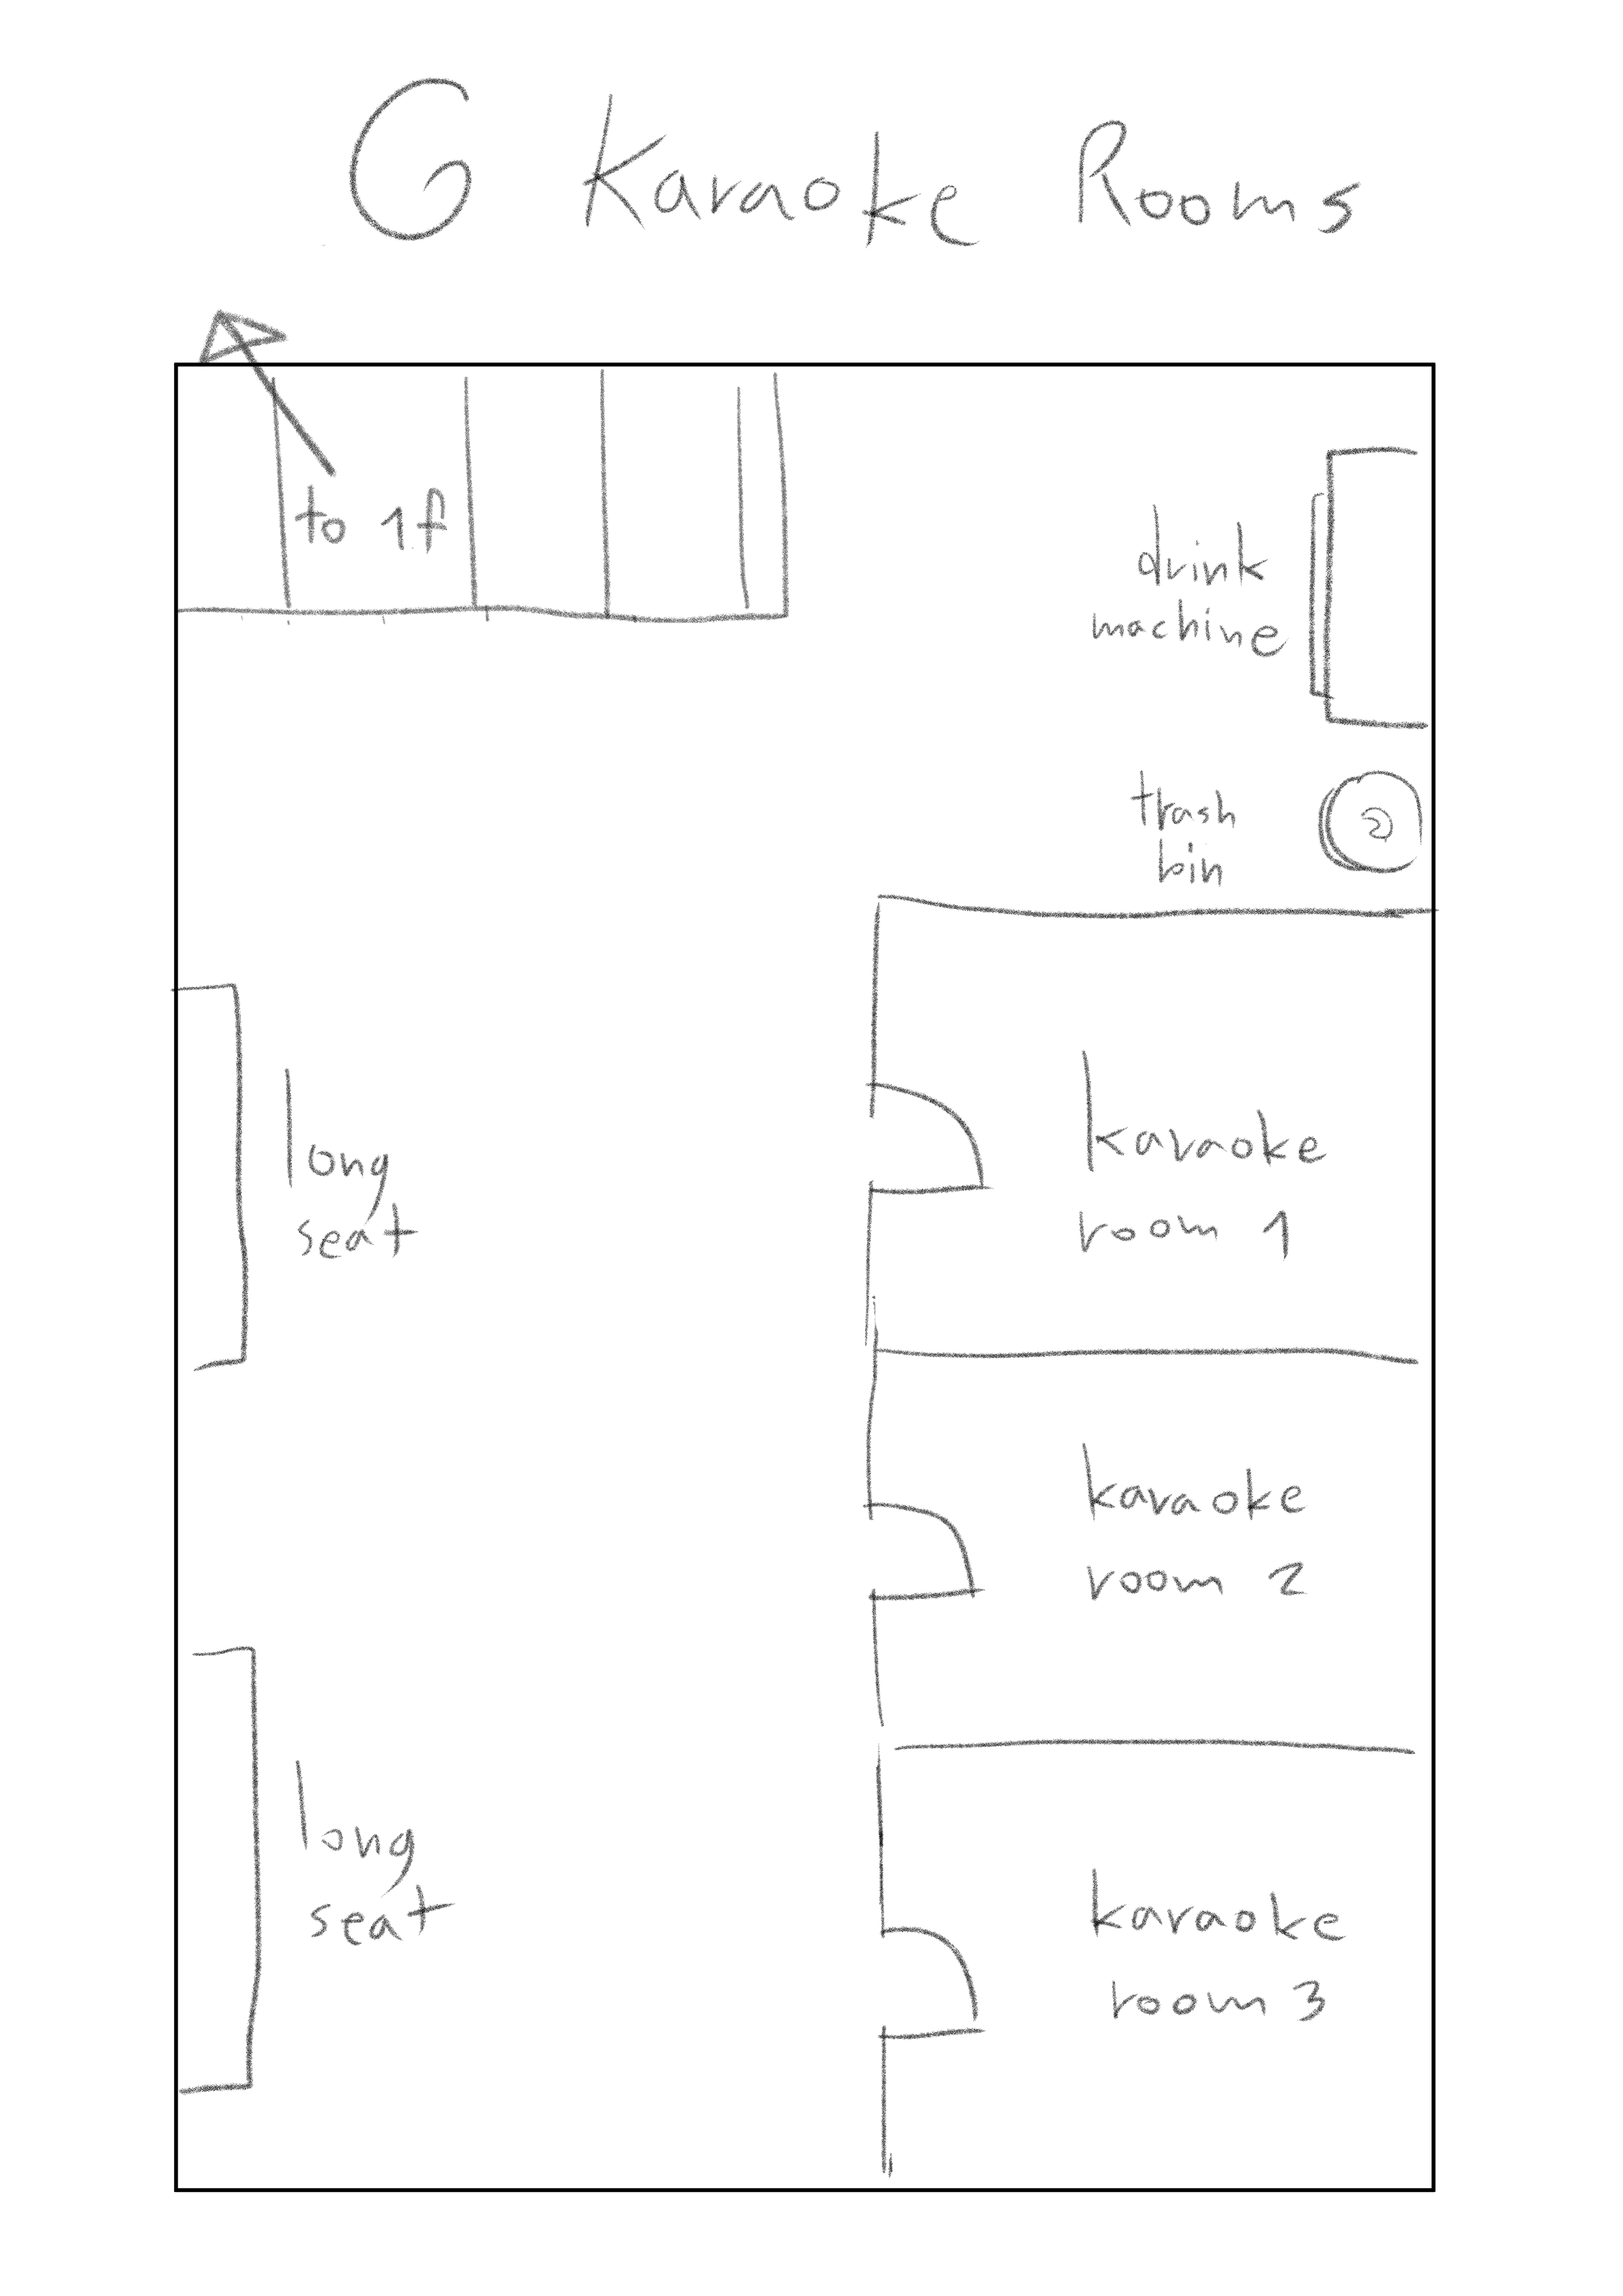 G Karaoke Rooms
to 1f
drink
machine
trash
bin
long
seat
karaoke
room 1
karaoke
room 2
long
seat
karaoke
room 3